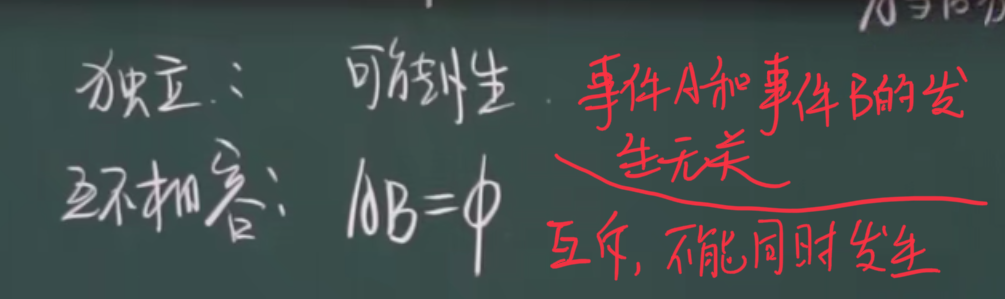 独立: 可能性 事件A和事件B的发
生无关
互不相容: AB=φ
互斥, 不能同时发生